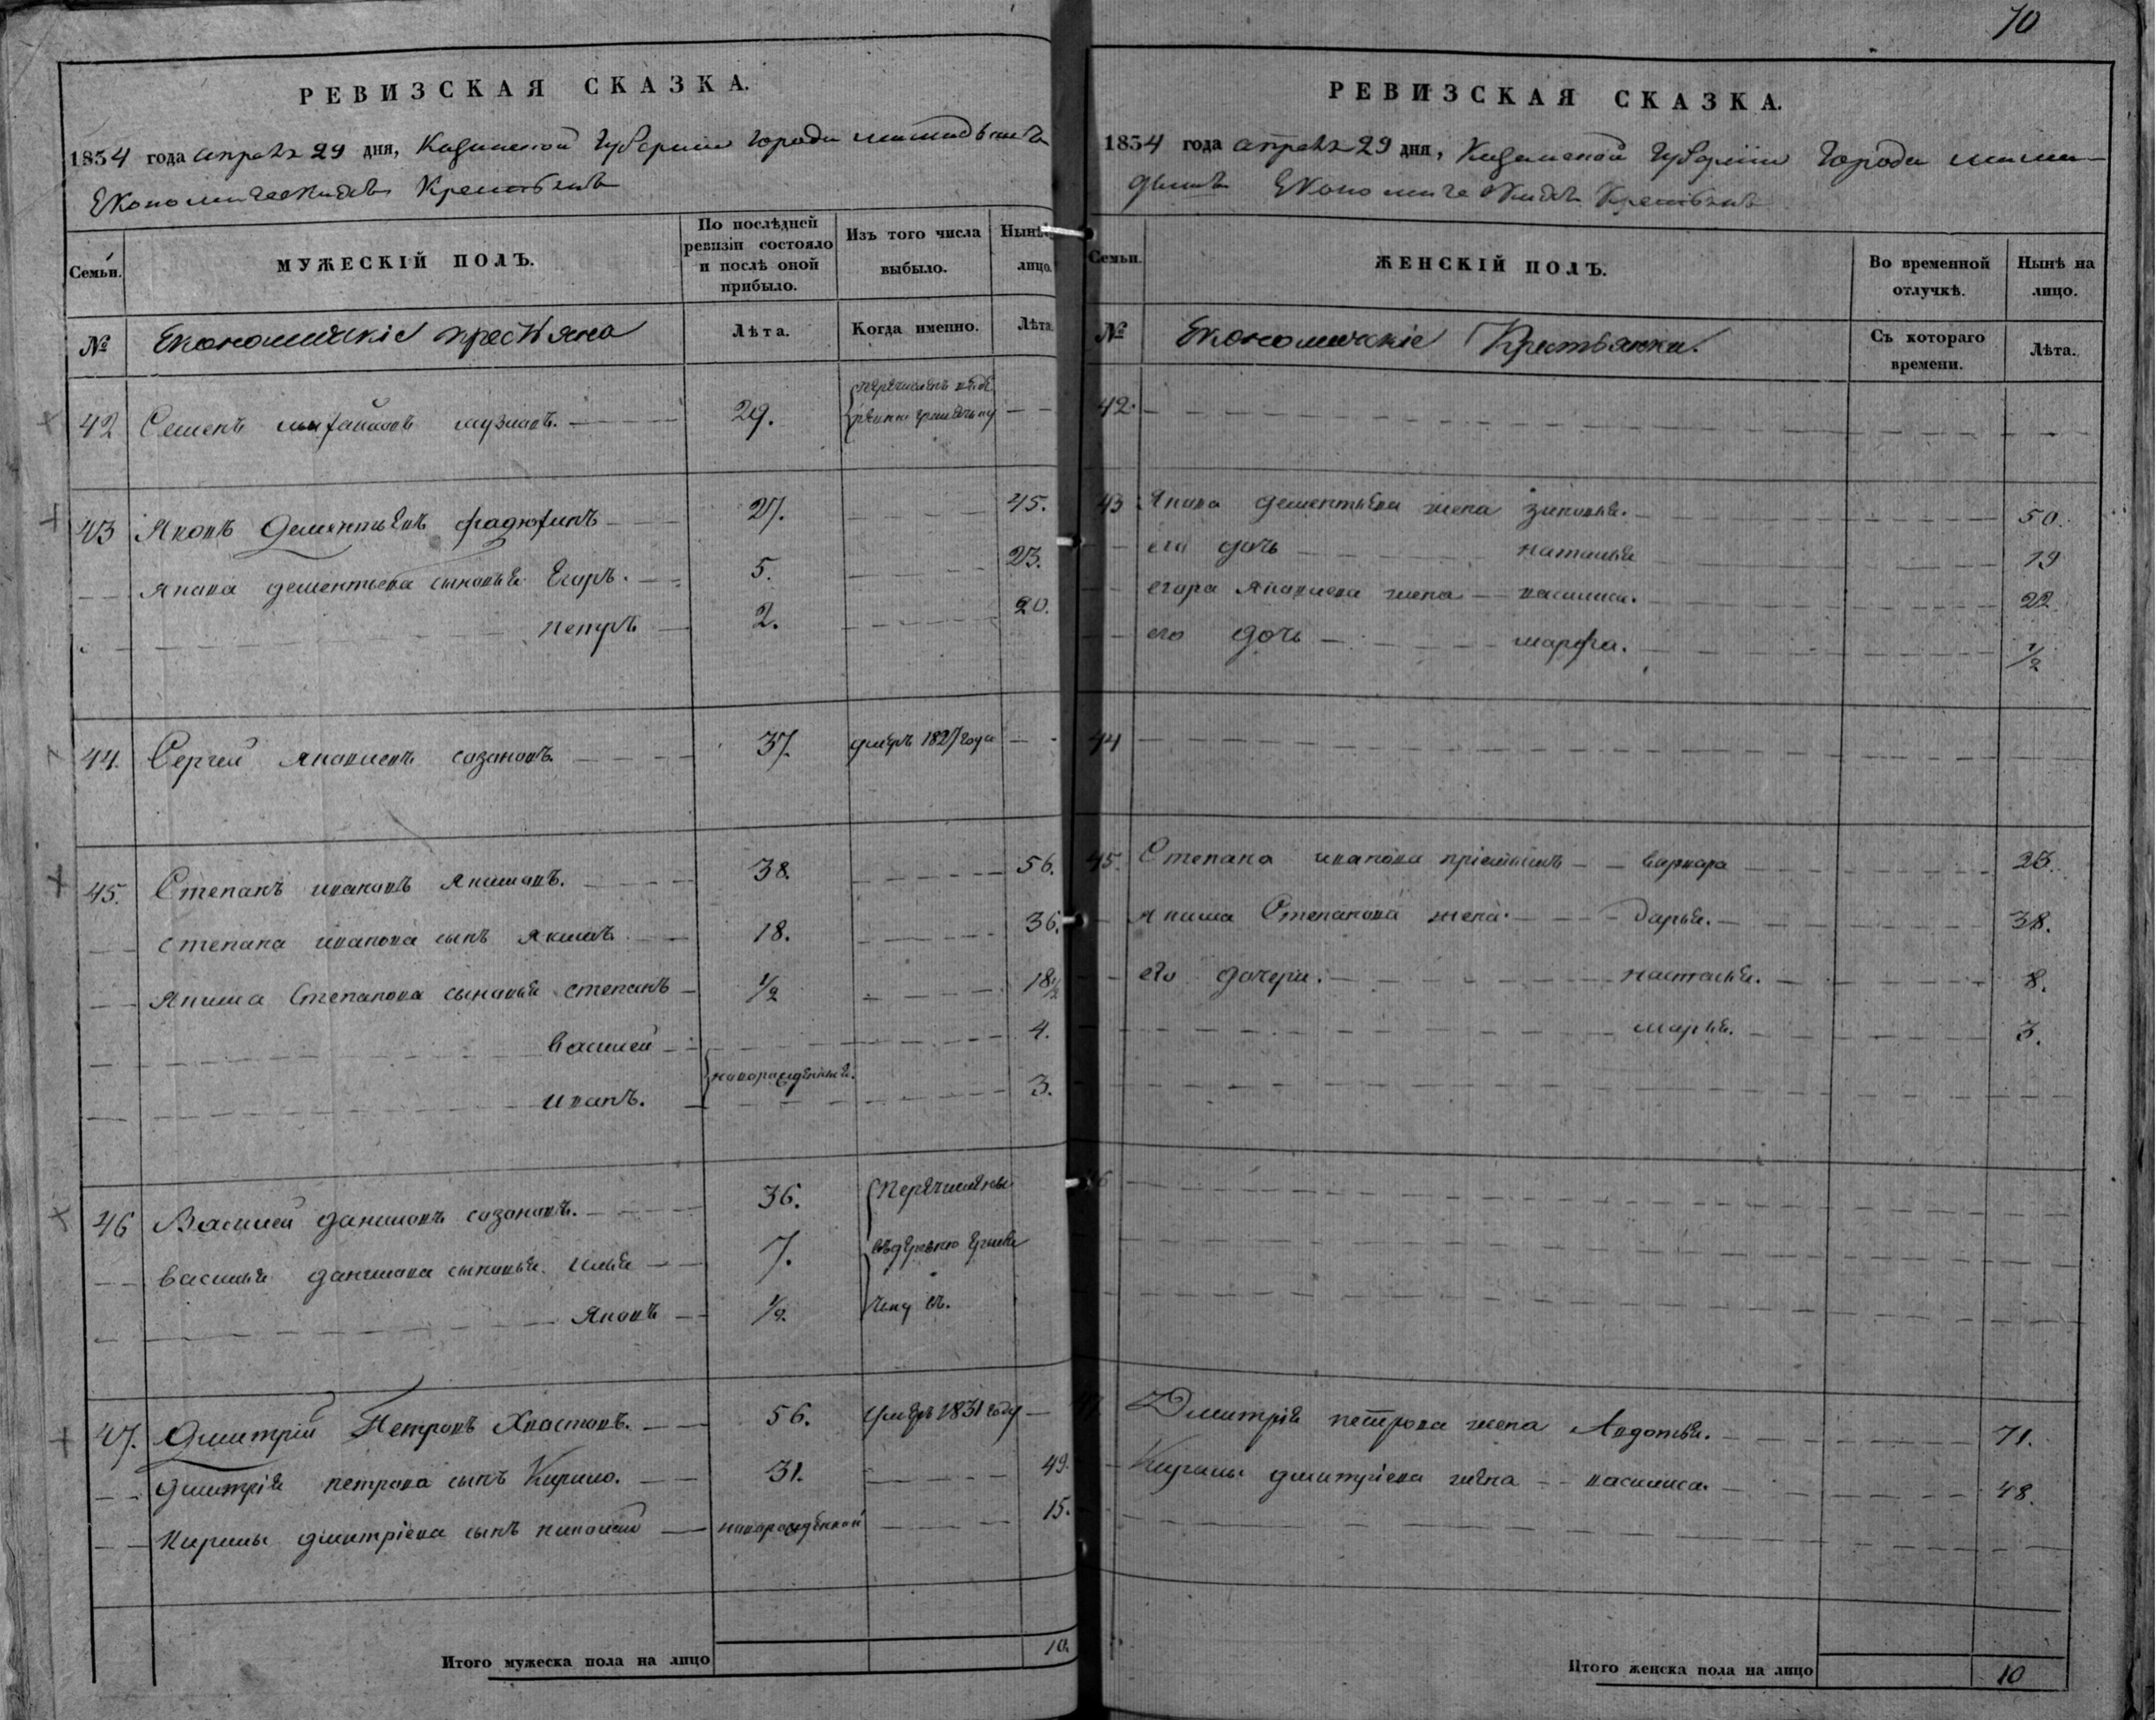 10
РЕВИЗСКАЯ СКАЗКА.
1854 года апреля 29 дня, Казанской Губернии города
Економическихъ Крестьянъ
Семьи.
МУЖЕСКІЙ ПОЛЪ.
По послѣдней ревизіи состояло и послѣ оной прибыло.
Изъ того числа выбыло.
Нынѣ лицо.
№
Економическіе крестьяне
Лѣта.
Когда именно.
Лѣта.
42 Семенъ 29.
43 Яковъ Дементьевъ 27. 45.
Якова дементьева сыновья Егоръ. 5. 23.
петръ 2. 20.
44. Сергей Яковлевъ сазановъ. 37. умеръ 1827 года
45. Степанъ ивановъ Якимовъ. 38. 56.
степана иванова сынъ Якимъ 18. 36.
Якима Степанова сыновья степанъ 1/2 18 1/2
василей 4.
новорожденные.
иванъ. 3.
46 Василей даниловъ сазоновъ. 36. Перечислены
василья данилова сыновья илья 7. въ деревню
Яковъ 1/2.
47. Дмитрій Петровъ Хвастовъ. 56. умеръ 1831 году
дмитрія петрова сынъ Кирило. 31. 49.
Кирилы дмитріева сынъ николай новорожденной 15.
Итого мужеска пола на лицо 10.
РЕВИЗСКАЯ СКАЗКА.
1854 года апреля 29 дня, Казанской Губерніи города
Економическихъ Крестьянъ
Семьи.
ЖЕНСКІЙ ПОЛЪ.
Во временной отлучкѣ.
Нынѣ на лицо.
№
Економическіе Крестьянки.
Съ котораго времени.
Лѣта.
42.
43 Якова дементьева жена зиновья. 50.
его дочь наталья 19
егора Яковлева жена василиса. 22.
его дочь марфа. 1/2
44
45. Степана иванова варвара 23.
Якима Степанова жена. дарья. 38.
его дочери. наталья. 8.
марья. 3.
46
47 Дмитрія петрова жена Авдотья. 71.
Кирилы дмитріева жена василиса. 48.
Итого женска пола на лицо 10